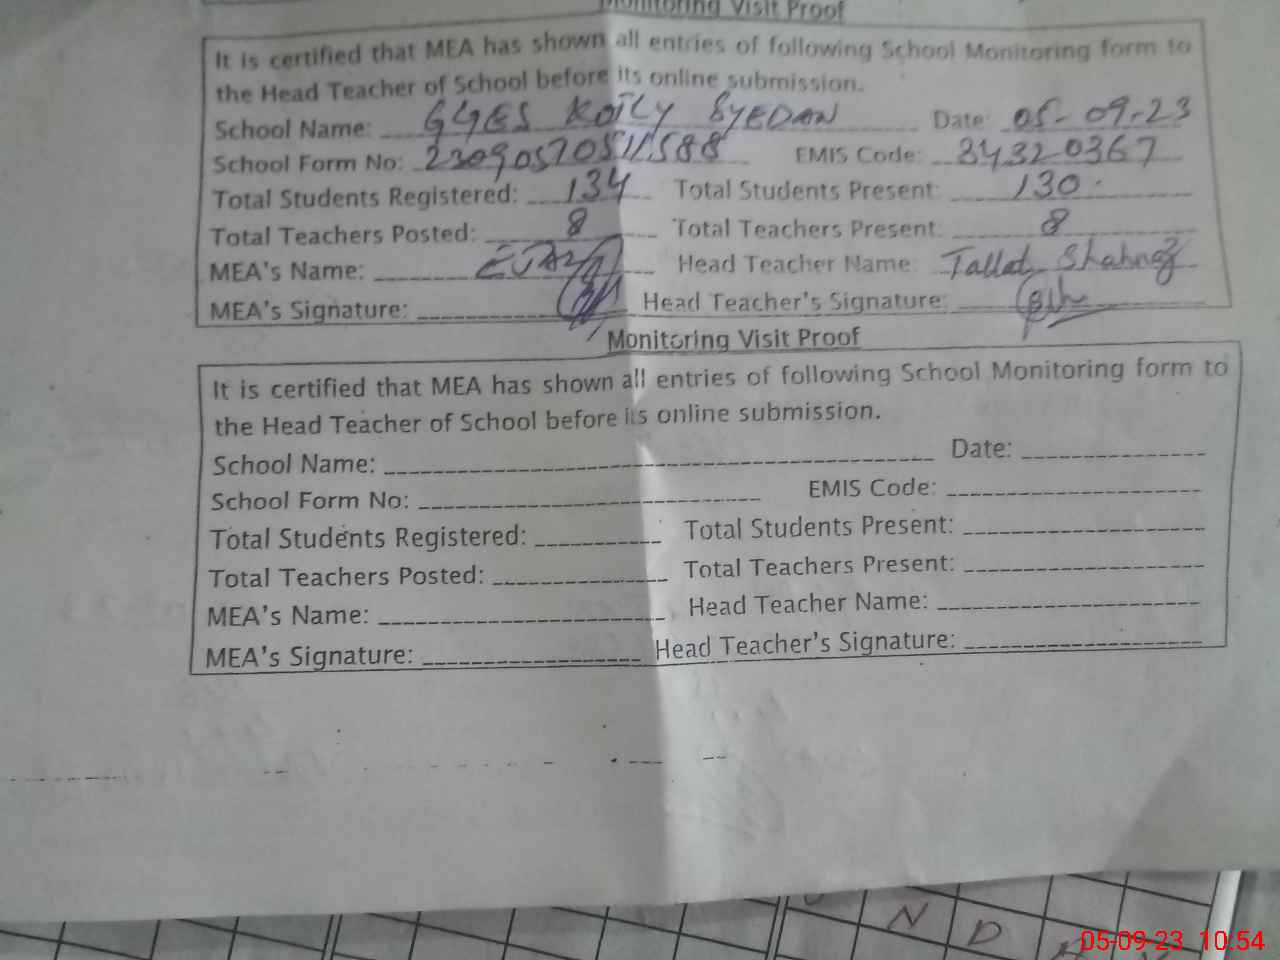 Monitoring Visit Proof
It is certified that MEA has shown all entries of following School Monitoring form to
the Head Teacher of School before its online submission.
School Name: GGES KOTLY SYEDAN Date: 05-09-23
School Form No: 2309057051588 EMIS Code: 34320367
Total Students Registered: 134 Total Students Present: 130
Total Teachers Posted: 8 Total Teachers Present: 8
MEA's Name: EJAZ Head Teacher Name: Tallat Shahnaz
MEA's Signature: Head Teacher's Signature:
Monitoring Visit Proof
It is certified that MEA has shown all entries of following School Monitoring form to
the Head Teacher of School before its online submission.
School Name: Date:
School Form No: EMIS Code:
Total Students Registered: Total Students Present:
Total Teachers Posted: Total Teachers Present:
MEA's Name: Head Teacher Name:
MEA's Signature: Head Teacher's Signature:
N D
05-09-23 10:54